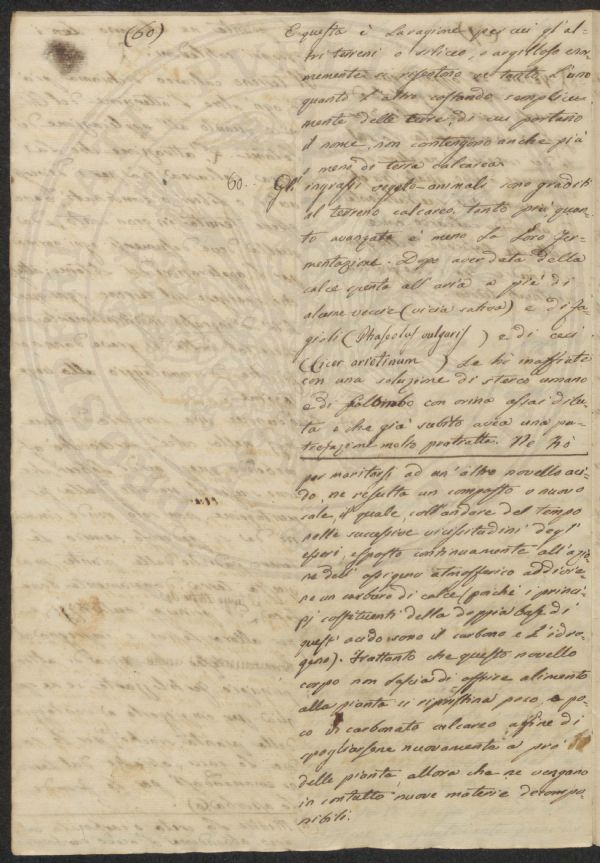 (60)
E questa è la ragione per cui gl'al-
tri terreni o siliceo, o argilloso enor-
memente si risentono se tanto l'uno
quanto l'altro costando semplice-
mente delle terre, di cui portano
il nome, non contengono anche più
o meno di terra calcarea.
60.. Gl'ingrassi vegeto-animali sono graditi
al terreno calcareo, tanto più quan-
to avanzata è meno la loro fer-
mentazione. Dopo aver data della
calce spenta all'aria a piè di
alcune veccie (vicia sativa) e di fa-
gioli (Phaseolus vulgaris) e di ceci
(Cicer arietinum) le hò inaffiate
con una soluzione di sterco umano
e di Colombo con orina assai dilu-
ta e che già subito avea una pu-
trefazione molto protratta. Ne hò
per maritarsi ad un'altro novello aci-
do, ne resulta un composto o nuovo
sale, il quale, coll'andare del tempo
nelle successive vicissitudini degl'
esseri, esposto continuamente all'azio-
ne dell'ossigeno atmosferico addivie-
ne un carburo di calce (poichè i princi-
pj costituenti della doppia base di
quest'acido sono il carbono e l'idro-
geno). Frattanto che questo novello
corpo non lascia di offrire alimento
alla pianta si ripristina poco, a po-
co in carbonato calcareo affine di
spogliarsene nuovamente a prò
delle piante, allora che ne vengano
in contatto nuove materie decompo-
nibili.